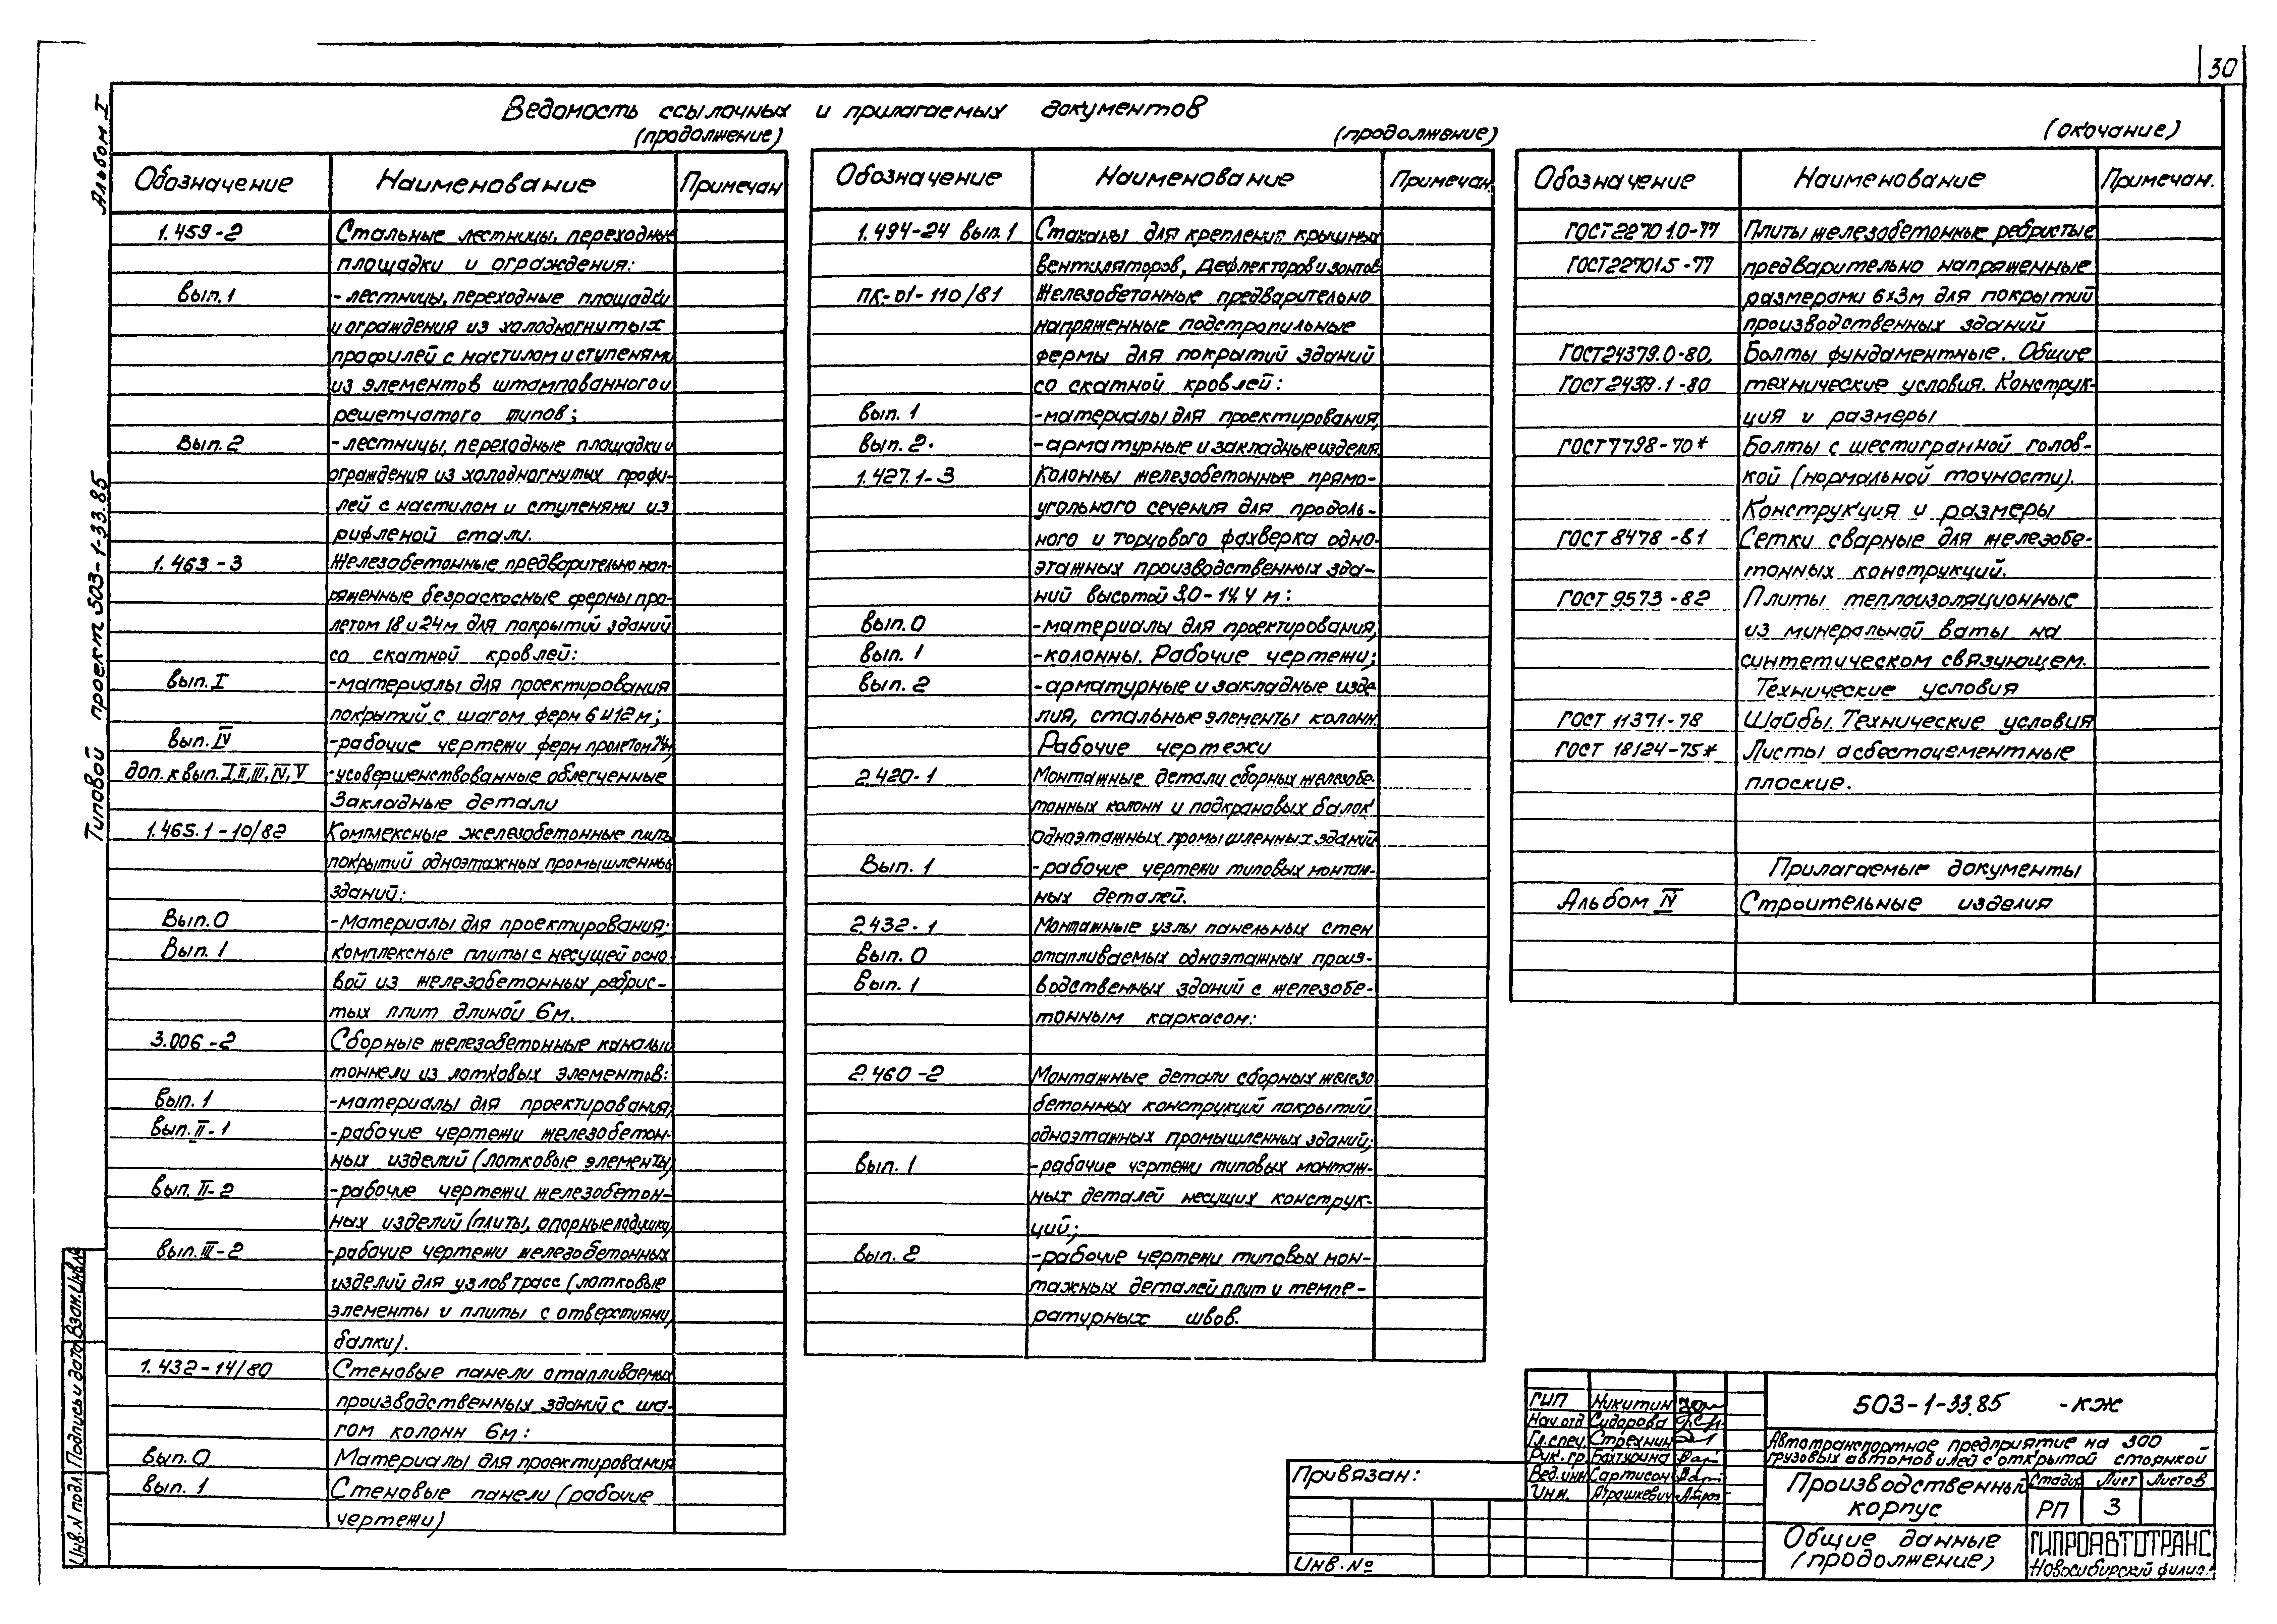 30
Альбом I
Типовой проект 503-1-33.85
Ведомость ссылочных и прилагаемых документов
(продолжение)
Обозначение Наименование Примечан
1.459-2 Стальные лестницы, переходные
площадки и ограждения:
вып.1 -лестницы, переходные площадки
и ограждения из холодногнутых
профилей с настилом и ступенями
из элементов штампованного и
решетчатого типов;
Вып.2 -лестницы, переходные площадки и
ограждения из холодногнутых профи-
лей с настилом и ступенями из
рифленой стали.
1.463-3 Железобетонные предварительно нап-
ряженные безраскосные фермы про-
летом 18 и 24м для покрытий зданий
со скатной кровлей:
вып.I -материалы для проектирования
покрытий с шагом ферм 6 и 12м;
вып.IV -рабочие чертежи ферм пролетом 24м;
доп. к вып. I,II,III,IV,V -усовершенствованные облегченные
Закладные детали
1.465.1-10/82 Комплексные железобетонные плиты
покрытий одноэтажных промышленных
зданий:
Вып.0 -Материалы для проектирования;
Вып.1 комплексные плиты с несущей осно
вой из железобетонных ребрис-
тых плит длиной 6м.
3.006-2 Сборные железобетонные каналы и
тоннели из лотковых элементов:
вып.1 -материалы для проектирования;
вып.II-1 -рабочие чертежи железобетон-
ных изделий (лотковые элементы)
вып.II-2 -рабочие чертежи железобетон-
ных изделий (плиты, опорные подушки)
вып.III-2 -рабочие чертежи железобетонных
изделий для узлов трасс (лотковые
элементы и плиты с отверстиями,
балки).
1.432-14/80 Стеновые панели отапливаемых
производственных зданий с ша-
гом колонн 6м:
вып.0 Материалы для проектирования
вып.1 Стеновые панели (рабочие
чертежи)
(продолжение)
Обозначение Наименование Примечан.
1.494-24 вып.1 Стаканы для крепления крышных
вентиляторов, дефлекторов и зонтов
ПК-01-110/81 Железобетонные предварительно
напряженные подстропильные
фермы для покрытий зданий
со скатной кровлей:
вып. 1 -материалы для проектирования;
вып. 2. -арматурные и закладные изделия
1.427.1-3 Колонны железобетонные прямо-
угольного сечения для продоль-
ного и торцового фахверка одно-
этажных производственных зда-
ний высотой 3,0-14,4 м:
вып.0 -материалы для проектирования;
вып. 1 -колонны. Рабочие чертежи;
вып. 2 -арматурные и закладные изде
лия, стальные элементы колонн.
Рабочие чертежи
2.420-1 Монтажные детали сборных железобе-
тонных колонн и подкрановых балок
одноэтажных промышленных зданий
Вып. 1 -рабочие чертежи типовых монтаж-
ных деталей.
2.432-1 Монтажные узлы панельных стен
Вып. 0 отапливаемых одноэтажных произ-
Вып. 1 водственных зданий с железобе-
тонным каркасом:
2.460-2 Монтажные детали сборных железо
бетонных конструкций покрытий
одноэтажных промышленных зданий;
вып. 1 -рабочие чертежи типовых монтаж-
ных деталей несущих конструк-
ций;
вып. 2 -рабочие чертежи типовых мон-
тажных деталей плит и темпе-
ратурных швов.
(окочание)
Обозначение Наименование Примечан.
ГОСТ 22701.0-77 Плиты железобетонные ребристые
ГОСТ22701.5-77 предварительно напряженные
размерами 6х3м для покрытий
производственных зданий
ГОСТ24379.0-80, Болты фундаментные. Общие
ГОСТ2439.1-80 технические условия. Конструк-
ция и размеры
ГОСТ7798-70* Болты с шестигранной голов-
кой (нормальной точности).
Конструкция и размеры
ГОСТ 8478-81 Сетки сварные для железобе-
тонных конструкций.
ГОСТ 9573-82 Плиты теплоизоляционные
из минеральной ваты на
синтетическом связующем.
Технические условия
ГОСТ 11371-78 Шайбы. Технические условия
ГОСТ 18124-75* Листы асбестоцементные
плоские.
Прилагаемые документы
Альбом IV Строительные изделия
Инв.N подл. Подпись и дата Взам.Инв.№
Привязан:
Инв.№
ГИП Никитин
Нач.отд Сидорова
Гл.спец. Стрехнин
Рук.гр. Бахтурина
Вед.инж Сартисон
Инж. Атрашкевич
503-1-33.85 -КЖ
Автотранспортное предприятие на 300
грузовых автомобилей с открытой стоянкой
Производственный
корпус
Стадия Лист Листов
РП 3
Общие данные
(продолжение)
ГИПРОАВТОТРАНС
Новосибирский филиал